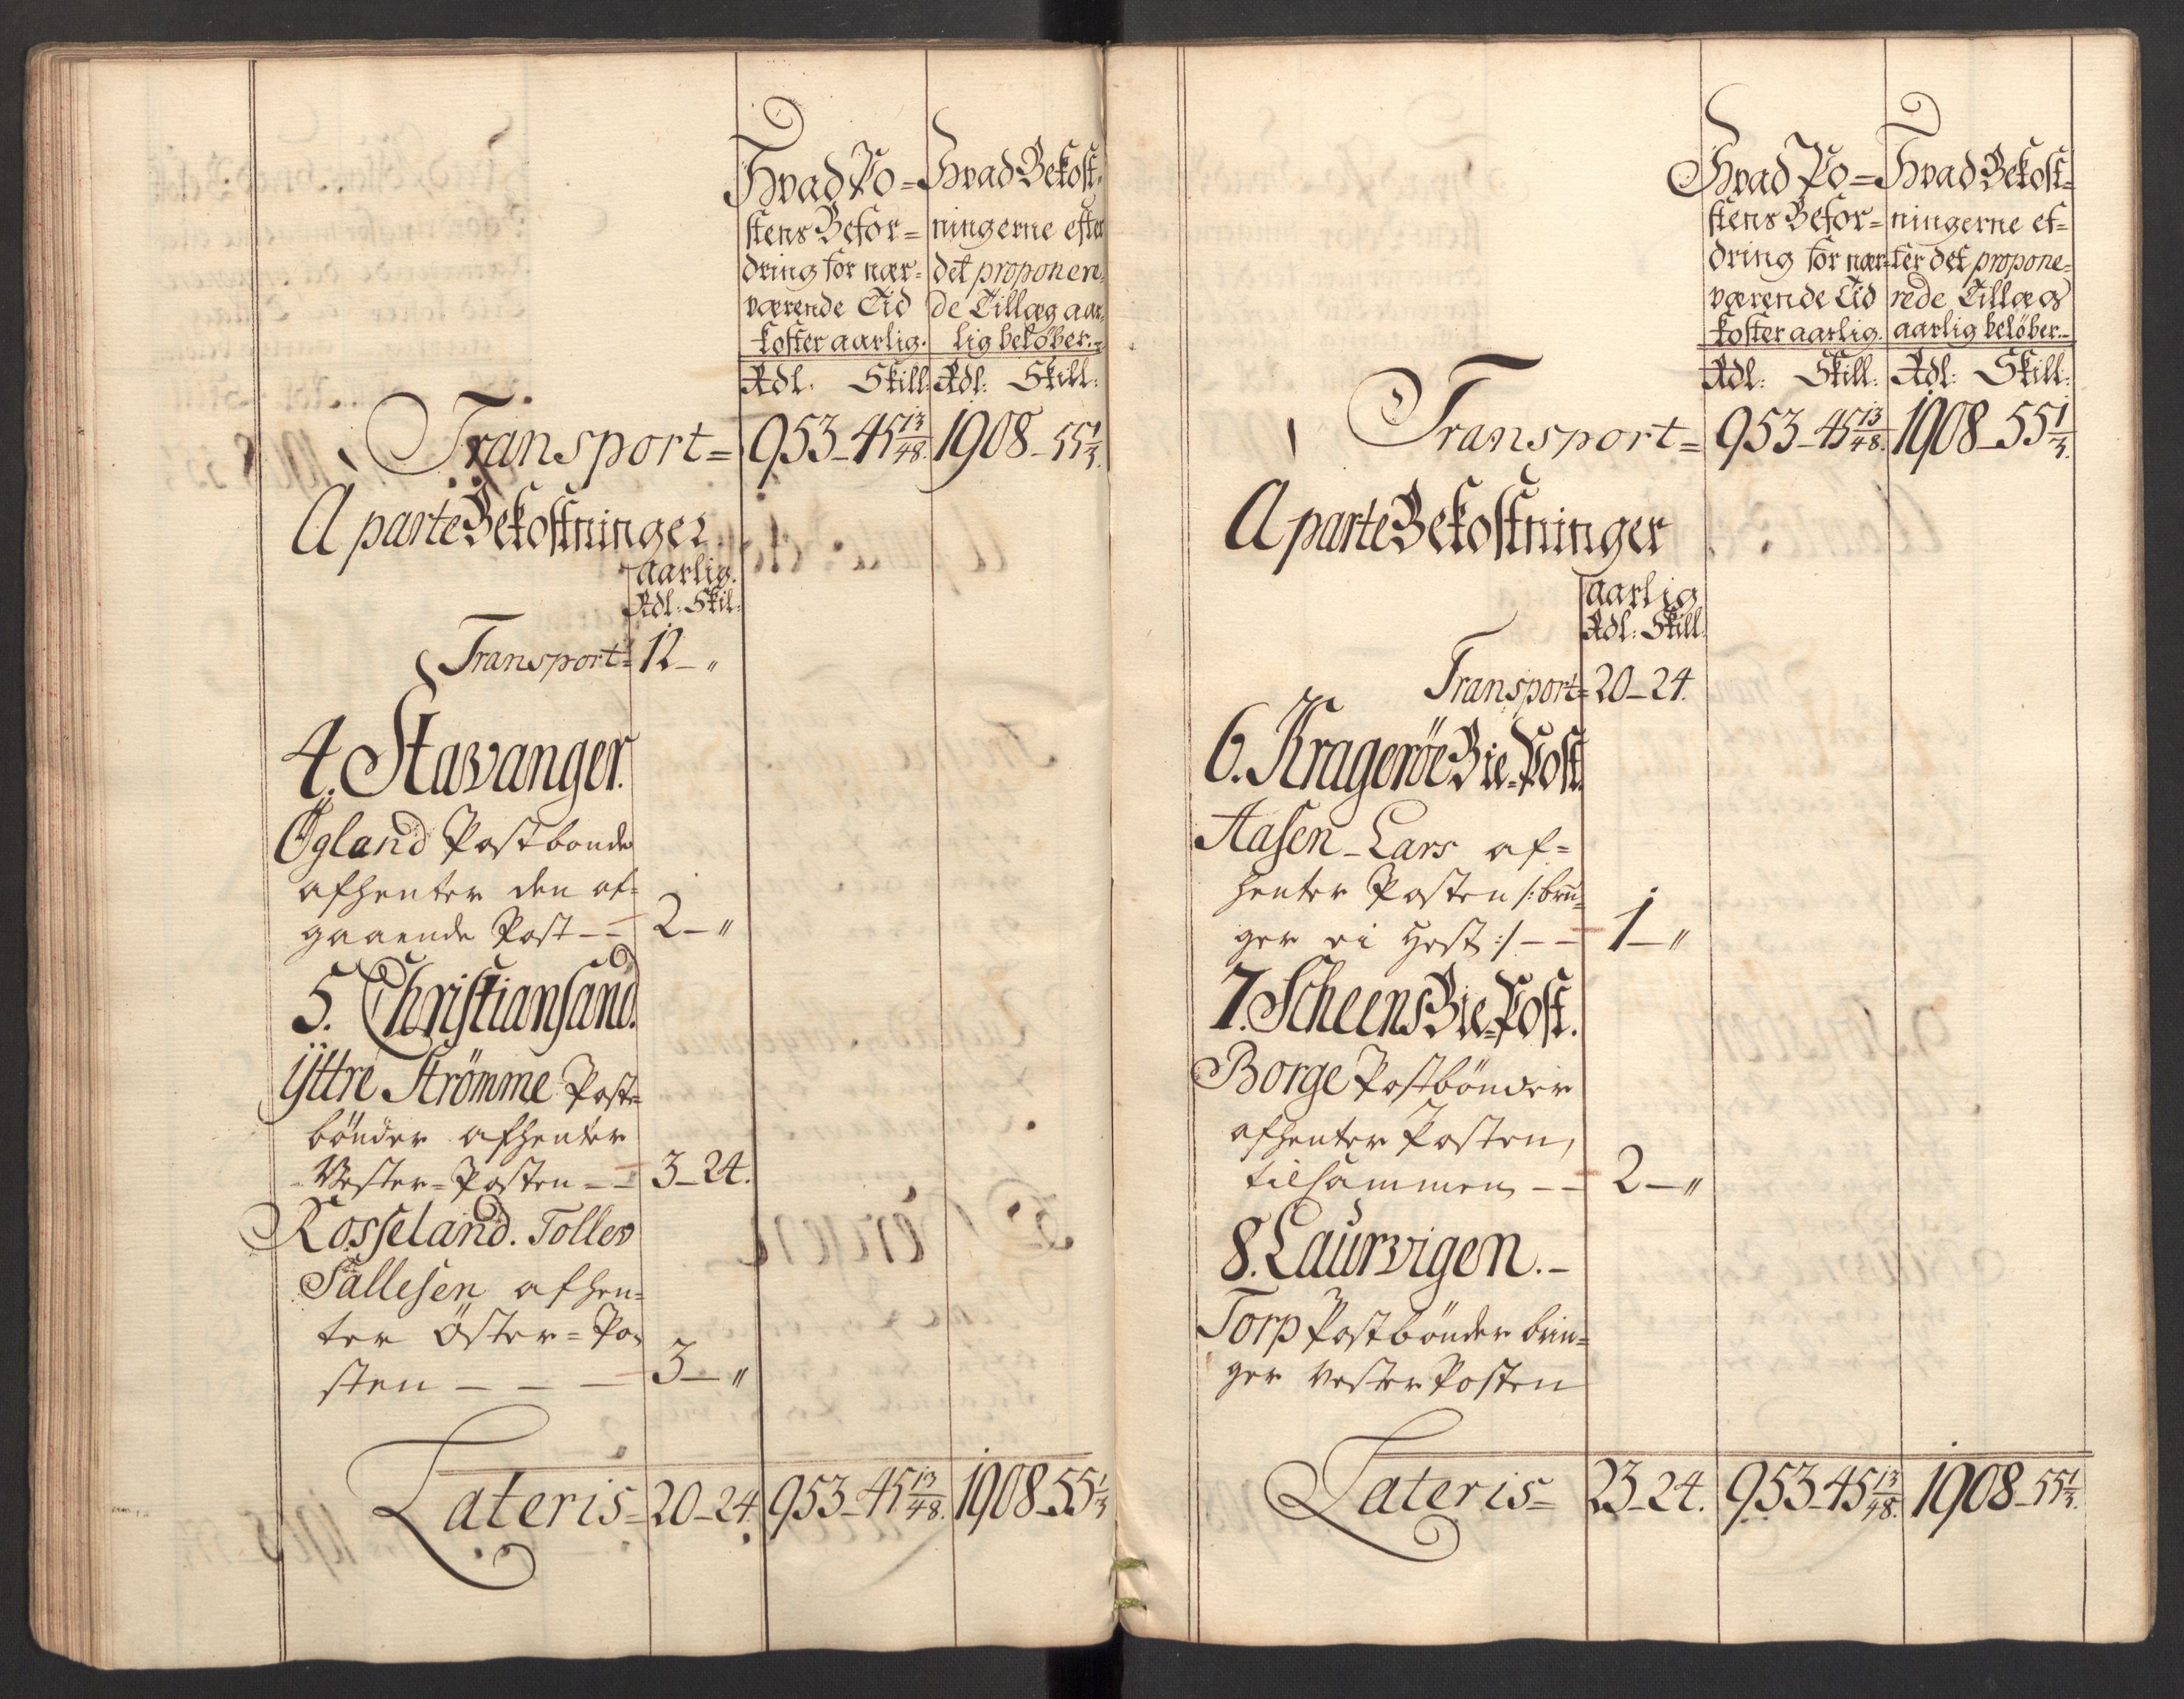 Hvad Po=
stens Befor=
dring for nær=
værende Tid
koster aarlig.
Rdl: Skill:
Hvad Bekost=
ningerne efter
det proponen=
de Tillæg aar=
lig beløber.=
Rdl: Skill:
Transport= 953_45 13/48. 1908_55 1/3.
Aparte Bekostninger
aarlig.
Rdl: Skil:
Transport= 12_"
4. Stavanger.
Ögland Postbonde
afhenter den af=
gaaende Post__ 2_"
5. Christiansand.
Yttre Strömme Post=
bönder afhenter
Vester=Posten__ 3_24.
Rosseland. Tollev
Sallesen afhen=
ter Öster=Po=
sten___ 3_"
Lateris= 20_24. 953_45 13/48. 1908_55 1/3
Hvad Po=
stens Befor=
dring for nær=
værende Tid
koster aarlig.
Rdl: Skill:
Hvad Bekost=
ningerne ef=
ter det propone=
rede Tillæg
aarlig beløber._
Rdl: Skill:
Transport= 953_45 13/48. 1908_55 1/3.
Aparte Bekostninger
aarlig
Rdl: Skill.
Transport= 20_24.
6. Kragerøe Bie=Post.
Aasen_Lars af=
henter Posten /:bru=
ger ei Hest:/__ 1_"
7. Scheens Bie=Post.
Borge Postbönder
afhenter Posten,
tilsammen__ 2_"
8. Laurvigen._
Torp Postbönder brin=
ger Vester Posten
Lateris= 23_24. 953_45 13/48. 1908_55 1/3.